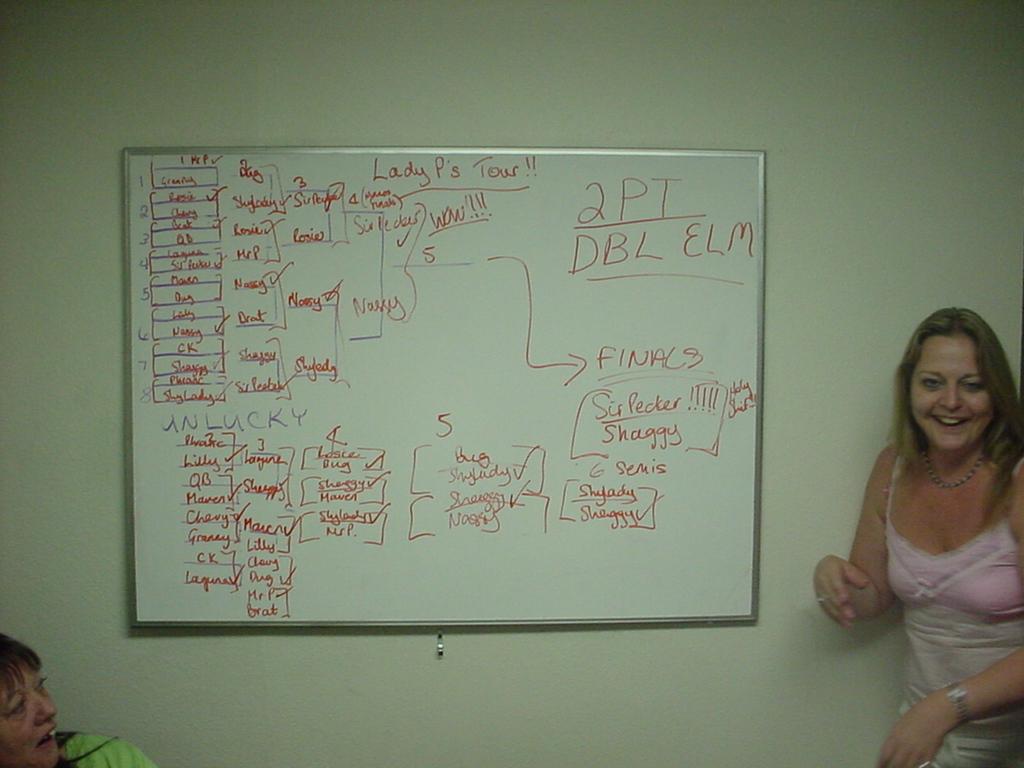 Lady P's Tour!!
2 PT
DBL ELM
1 MrP
1 Granny
2 Rosie
Chevy
3 Brat
QB
4 Laguna
Sir Pecker
5 Maven
Dug
6 Lilly
Nassy
7 CK
Shaggy
8 Phranc
ShyLady
2
Dug
Shylady
Rosie
MrP
Nassy
Brat
Shaggy
Sir Pecker
3
Sir Pecker
Rosie
Nassy
Shylady
4
Sir Pecker
Nassy
WOW!!!!
5
FINALS
Sir Pecker !!!!!!
Shaggy
UNLUCKY
Phranc
Lilly
QB
Maven
Chevy
Granny
CK
Laguna
3
Laguna
Shaggy
Maven
Lilly
Chevy
Dug
Mr P
Brat
4
Rosie
Dug
Shaggy
Maven
Shylady
Mr P.
5
Dug
Shylady
Shaggy
Nassy
6 Semis
Shylady
Shaggy